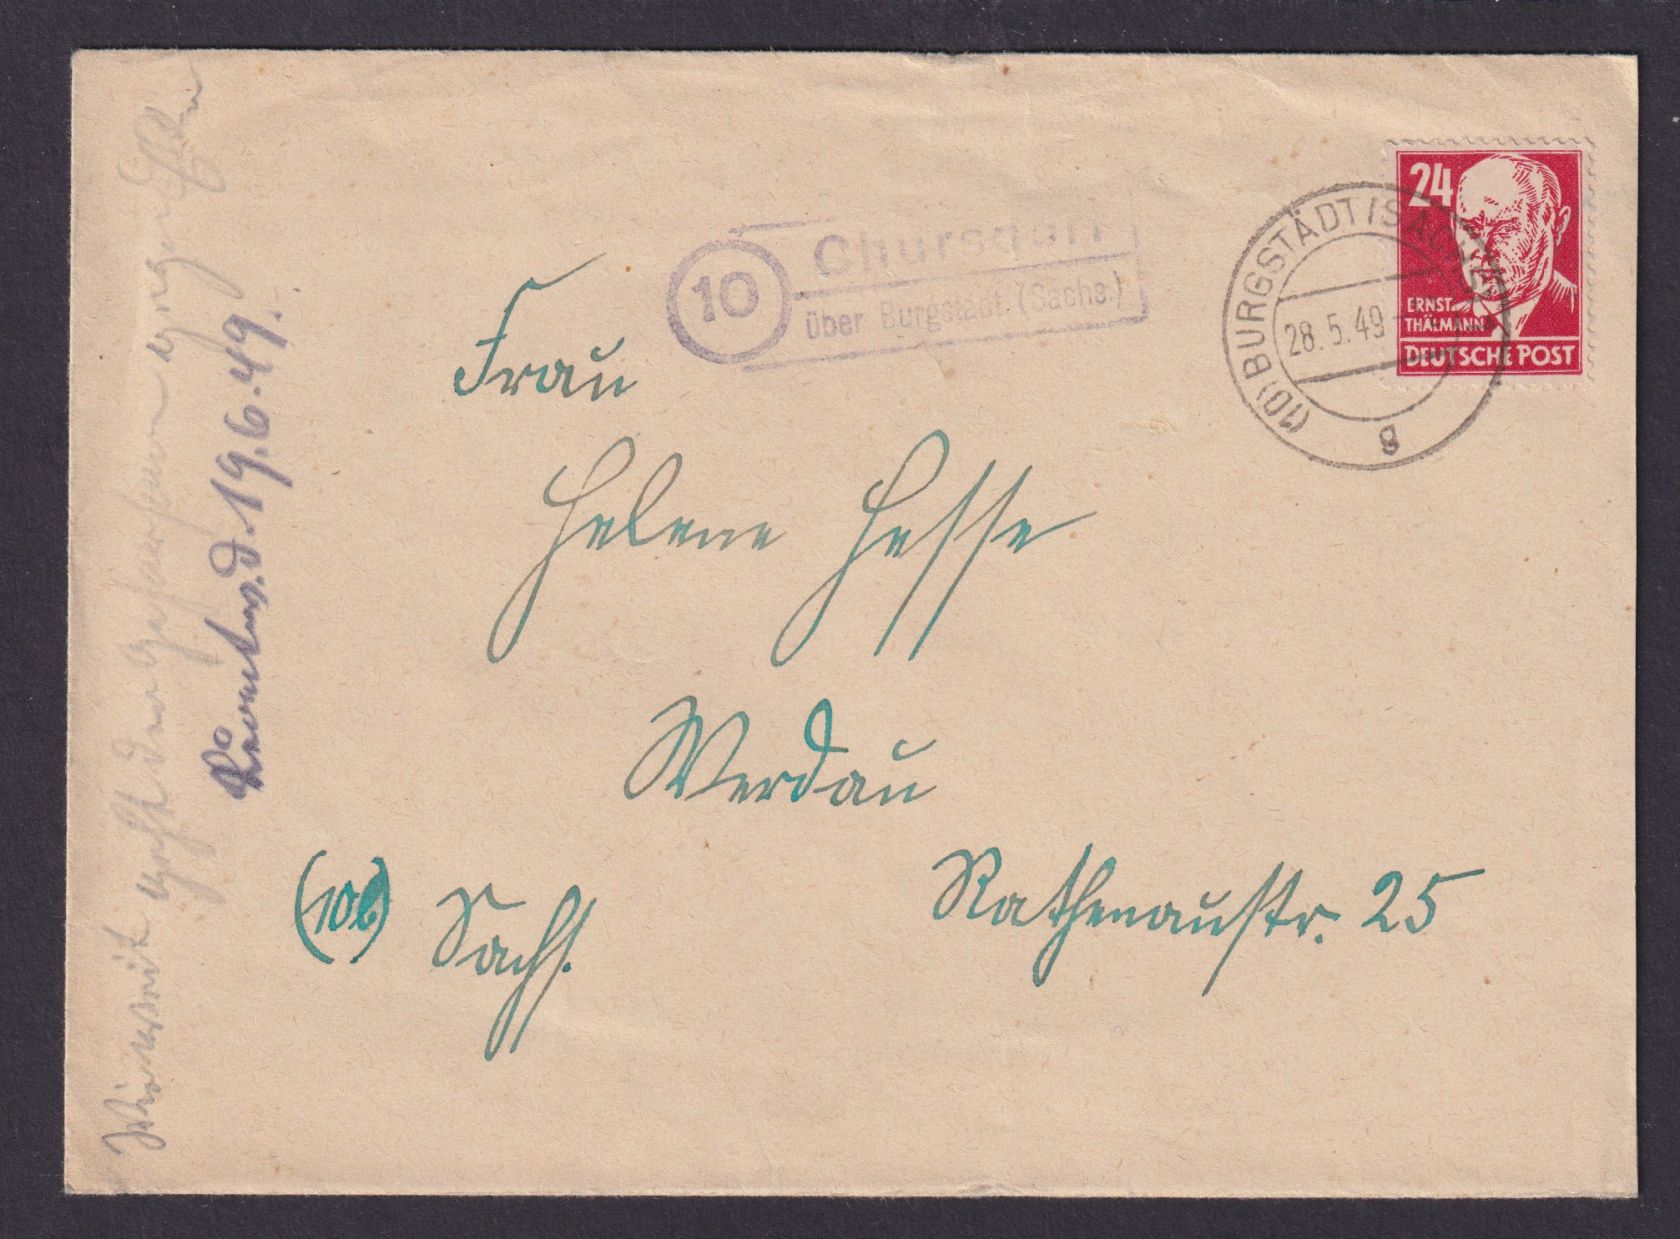 24
ERNST
THÄLMANN
DEUTSCHE POST
(10) BURGSTÄDT (SACHS)
28.5.49
g
10
Chursdorf
über Burgstädt (Sachs.)
Frau
Helene Hesse
Werdau
(10b) Sachs.
Rathenaustr. 25
d. 19.6.49.